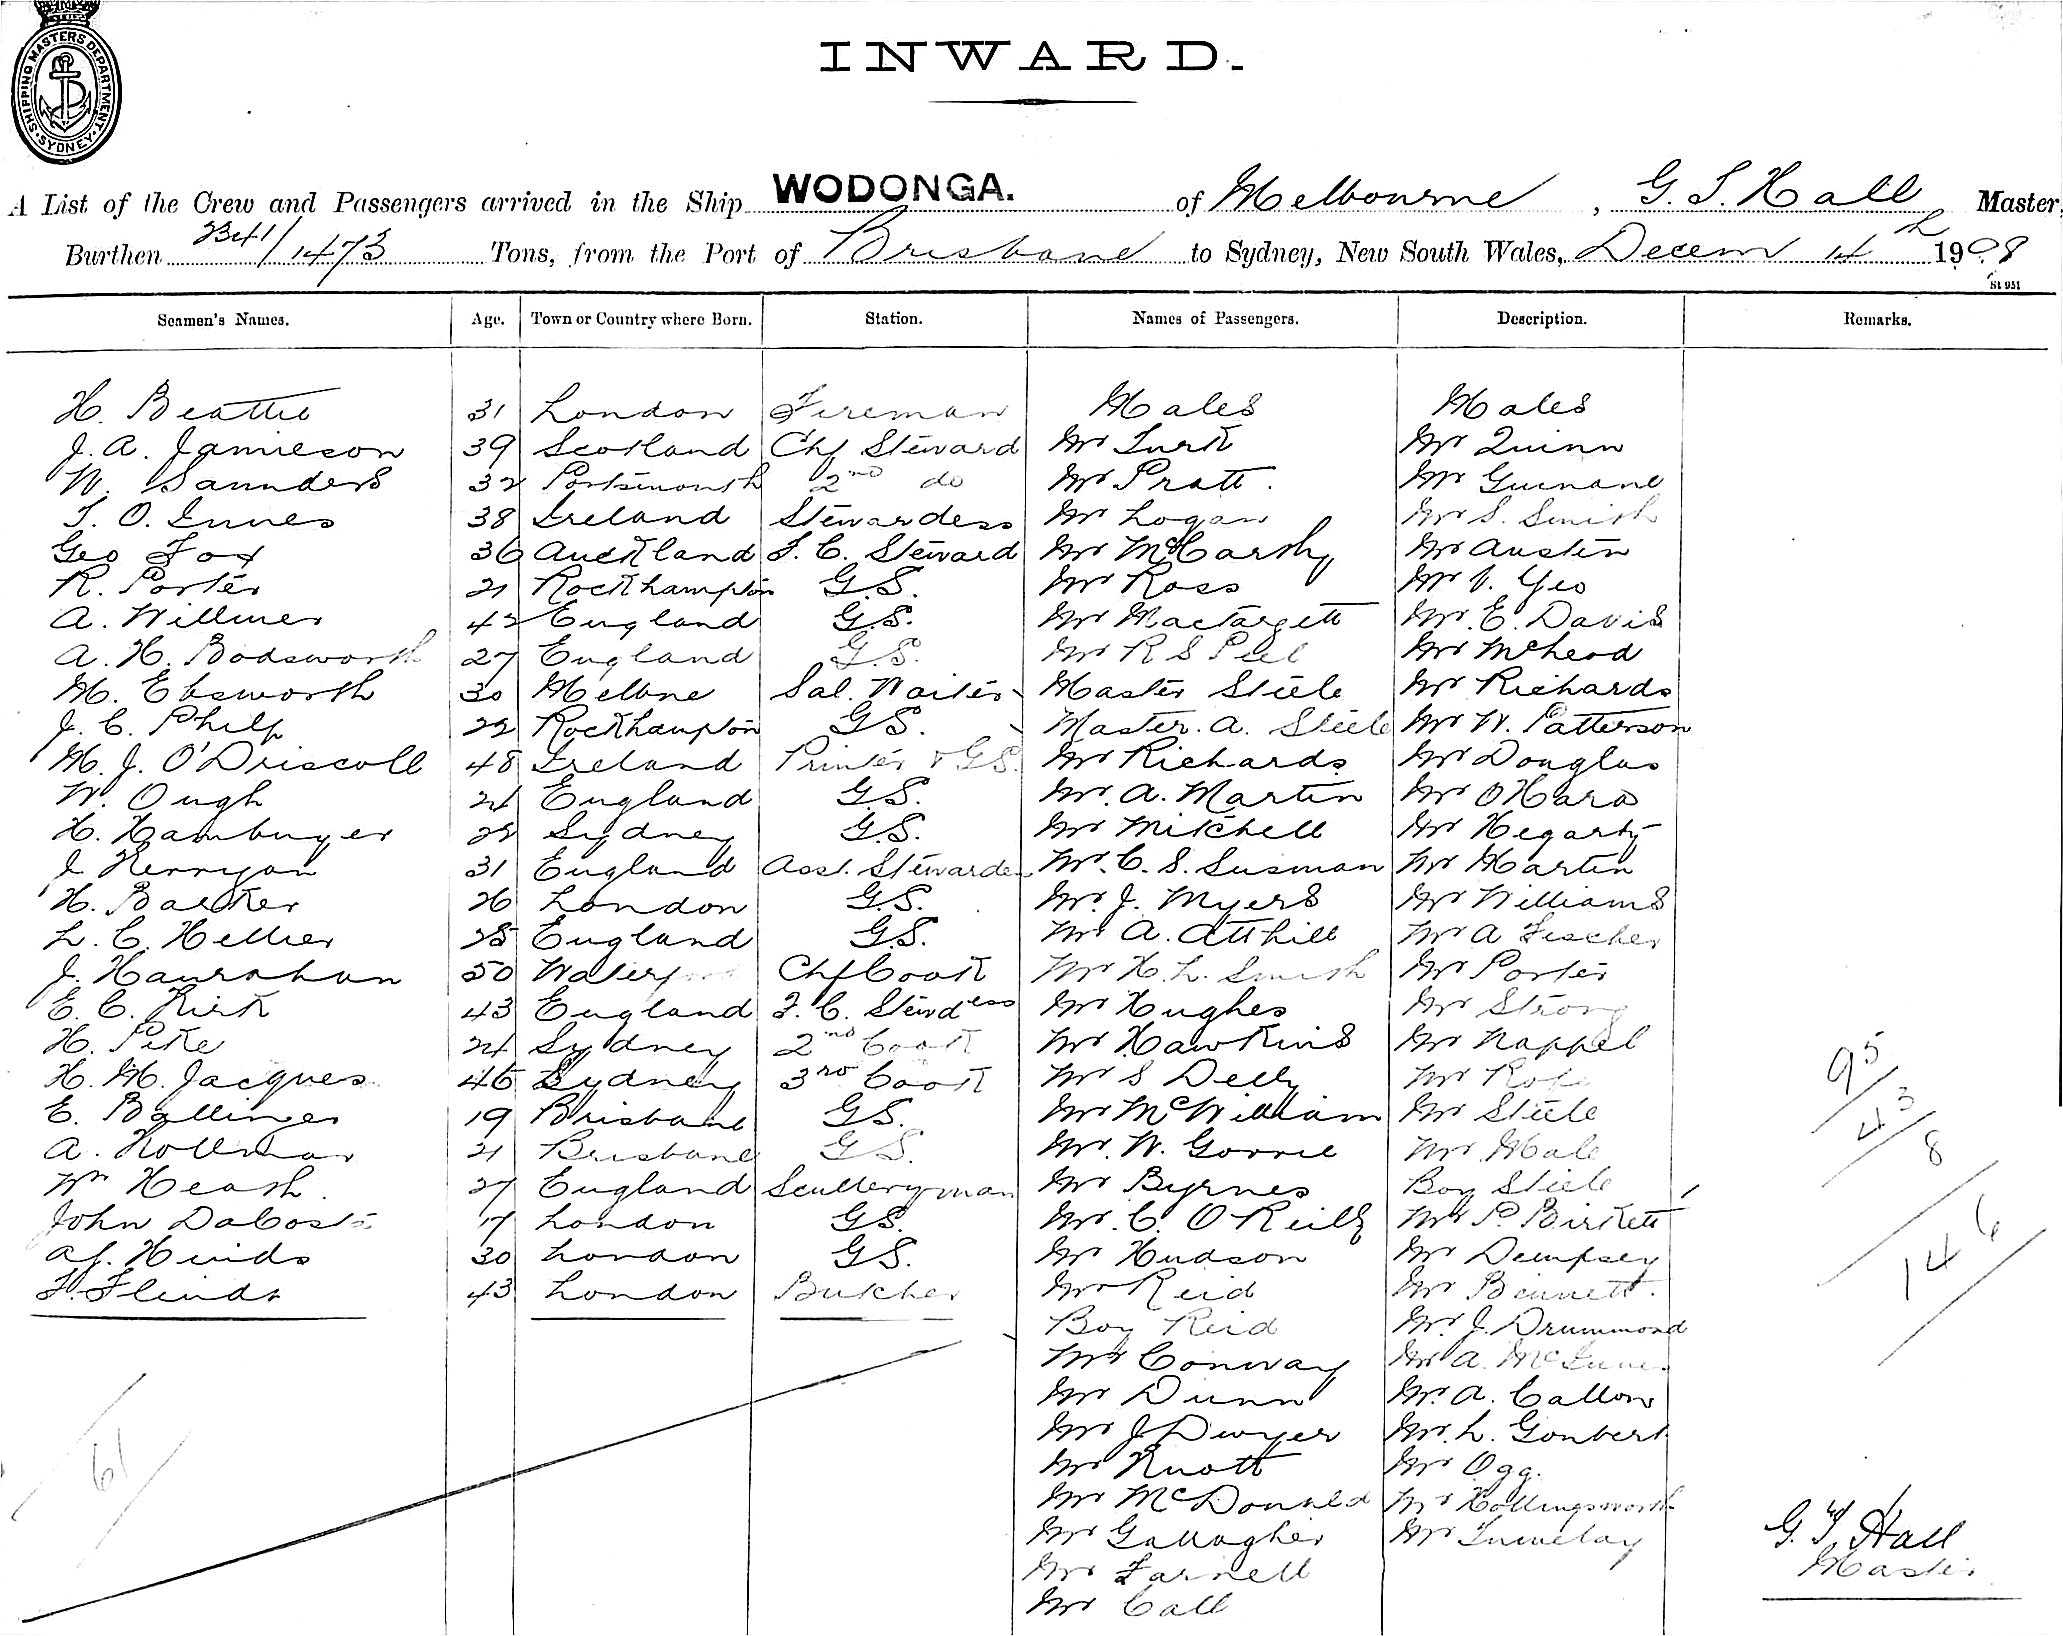 SHIPPING MASTERS DEPARTMENT. SYDNEY.
INWARD.
A List of the Crew and Passengers arrived in the Ship WODONGA. of Melbourne, G. S. Hall Master,
Burthen 2341/1473 Tons, from the Port of Brisbane to Sydney, New South Wales, Decem 14 1908
St 951
Seamen's Names. Age. Town or Country where Born. Station. Names of Passengers. Description. Remarks.
H. Beattie 31 London Fireman Males Males
J. A. Jamieson 39 Scotland Chf Steward Mr Turk Mr Quinn
W. Saunders 32 Portsmouth 2nd do Mr Pratt. Mr Guinane
T. O. Innes 38 Ireland Stewardess Mr Logan Mr S. Smith
Geo Fox 36 Auckland F. C. Steward Mr McCarthy Mr Austen
R. Porter 21 Rockhampton G.S. Mr Ross Mr V. Geo
A. Willmer 42 England G.S. Mr Mactagett Mr E. Davis
A. H. Bodsworth 27 England G.S. Mr R S Peel Mr McLeod
M. Ebsworth 30 Melbne Sal. Waiter Master Steele Mr Richards
J. C. Philp 22 Rockhampton G.S. Master. A. Steele Mr W. Patterson
M. J. O'Driscoll 48 Ireland Printer & G.S. Mr Richards Mr Douglas
W. Ough 21 England G.S. Mr. A. Martin Mr O'Hara
H. Hamburger 22 Sydney G.S. Mr Mitchell Mr Hegarty
J Kerryan 31 England Asst. Stewardess Mr. C. S. Susman Mr Martin
H. Balker 26 London G.S. Mr. J. Myers Mr Williams
L. C. Hellier 25 England G.S. Mr A. Atthill Mr A Fischer
J. Hanrahan 50 Waterford Chf Cook Mr H. L. Smith Mr Porter
E. C. Kirk 43 England F. C. Stewdess Mr Hughes Mr Strong
H. Pike 24 Sydney 2nd Cook Mr Hawkins Mr Nappel
H. M. Jacques 46 Sydney 3rd Cook Mr S Delly Mr Rofe
E. Ballinger 19 Brisbane G.S. Mr McWilliam Mr Steele
A. Hollmar 21 Brisbane G.S. Mr. W. Gorrie Mr Male
Wm Heash. 27 England Scullery man Mr Byrnes Boy Steele
John DaCosta 17 London G.S. Mr. C. O'Reilly Mr P. Birkett
Af. Hinds 30 London G.S. Mr Hudson Mr Dempsey
F. Flinds 43 London Butcher Mr Reid Mr Bennett.
Boy Reid Mr. J. Drummond
Mr Conway Mr A. McInnes
Mr Dunn Mr. A. Callow
Mr J Dwyer Mr. L. Gonbert
Mr Knott Mr Ogg.
Mr McDonald Mr Hollingsworth
Mr Gallagher Mr Tunelay
Mr Farnell
Mr Call
95/43/8
146
61
G. S. Hall
Master